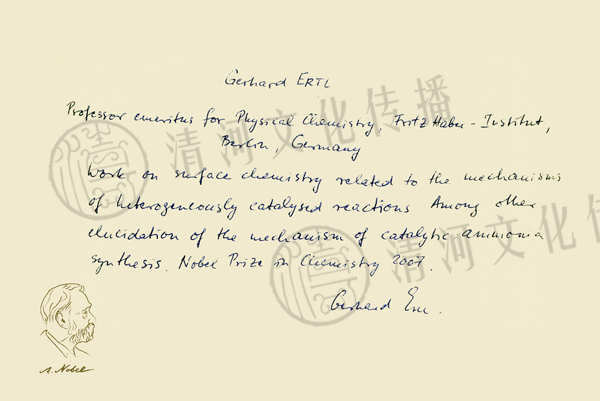 Gerhard ERTL
Professor emeritus for Physical Chemistry, Fritz Haber-Institut,
Berlin, Germany
Work on surface chemistry related to the mechanisms
of heterogeneously catalysed reactions. Among other
elucidation of the mechanism of catalytic ammonia
synthesis. Nobel Prize in Chemistry 2007.
Gerhard Ertl
A. Nobel
清河文化传播
清河文化传